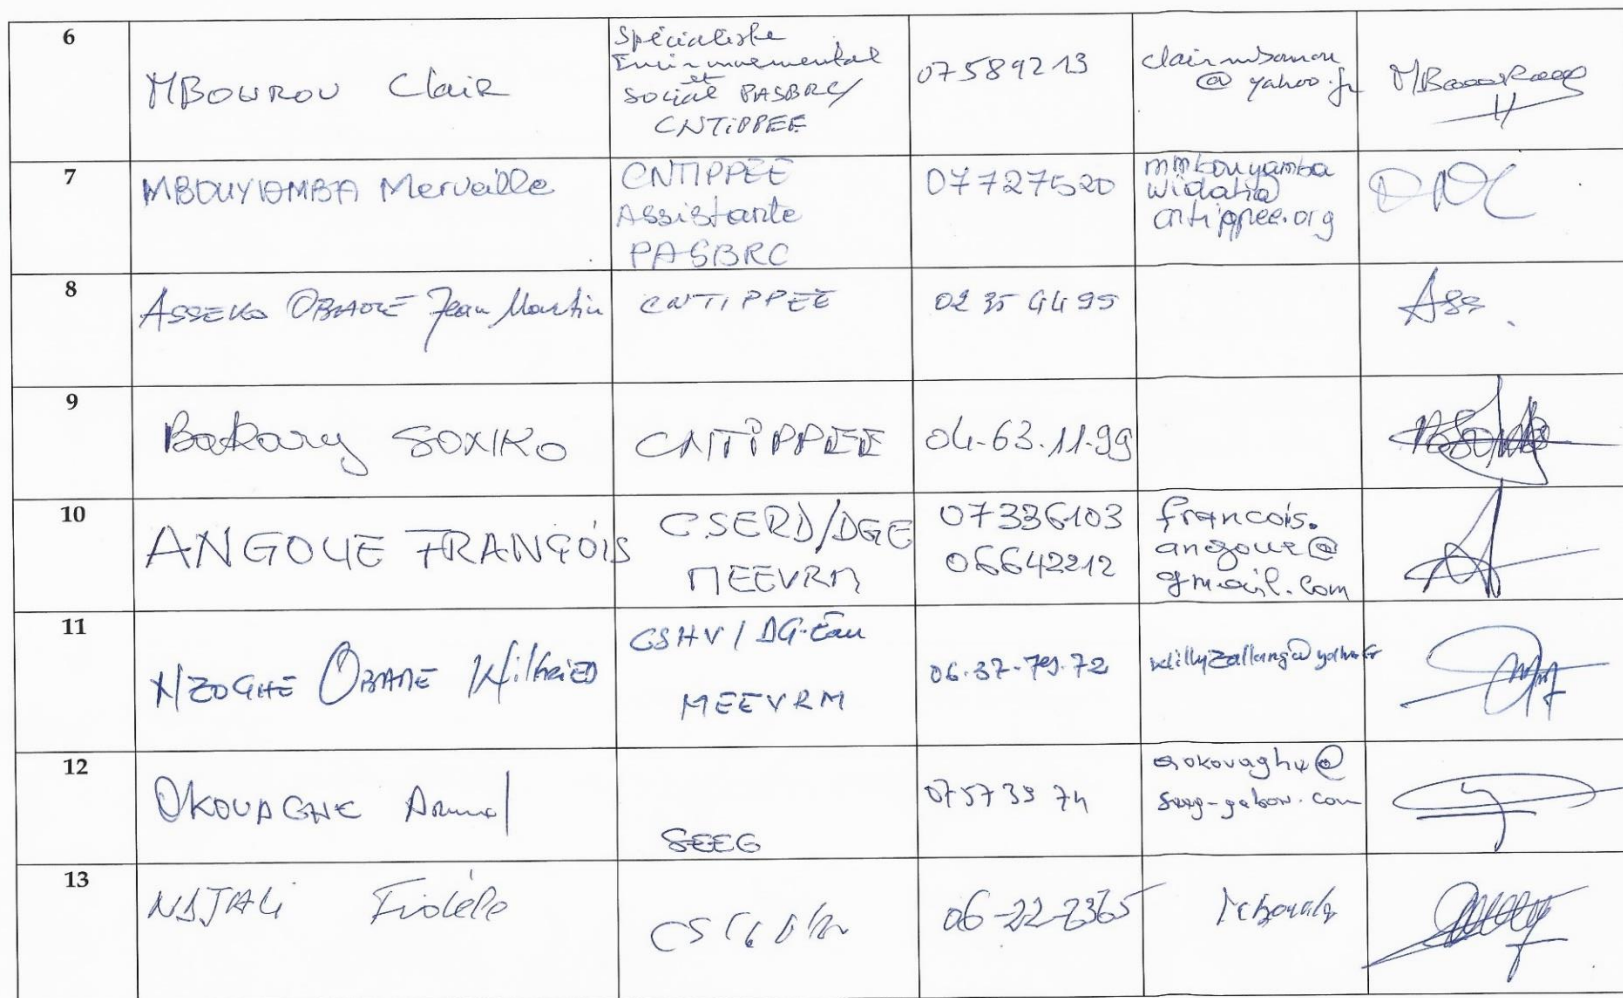 6
MBOUROU Clair
Spécialiste
Environnemental
et
social PASBRC/
CNTIPPEE
07589213
@ yahoo.fr
7
MBOUYIAMBA Merveille
CNTIPPEE
Assistante
PASBRC
07727520
cntippee.org
8
ASSEKO OBAME Jean Martin
CNTIPPEE
02 35 44 95
Ass.
9
Bakary SOXIKO
CNTIPPEE
04-63-11-99
10
ANGOUE FRANÇOIS
CSERD/DGE
MEEVRM
07336103
06642212
francois.
angoue@
gmail.com
11
NZOGHE OBAME Wilfried
CSHV / DG-Eau
MEEVRM
06.37-79.72
12
OKOUAGHE Armel
SEEG
075739 74
aokouaghe@
seeg-gabon.com
13
NDJALI Fidèle
06-22-2365